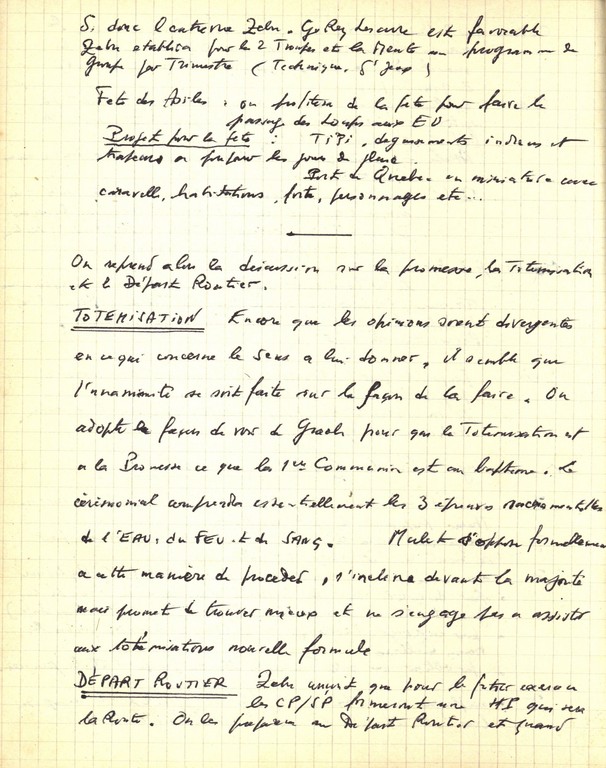 Si donc l'antenne Zebu. Go Rey Lescure est favorable
Zebu établira pour les 2 Troupes et la Meute un programme de
Groupe par Trimestre (Technique, Gds Jeux)
Fete des Ailes : on profitera de la fete pour faire le
passage des Loups aux EU
Projet pour la fete : TiPi, déguisements indiens et
trappeurs a préparer les jours de pluie.
Port de Quebec en miniature avec
caravelle, habitations, forts, personnages etc...
On reprend alors la discussion sur la promesse, la Totemisation
et le Départ Routier.
TOTEMISATION Encore que les opinions soient divergentes
en ce qui concerne le sens a lui donner, il semble que
l'unanimité se soit faite sur la façon de la faire. On
adopte la façon de voir de Graoh pour que la Totemisation est
a la Promesse ce que la 1ere Communion est au baptême. Le
cérémonial comprendra essentiellement les 3 épreuves sacramentelles
de l'EAU, du FEU et du SANG. Mulet s'oppose formellement
a cette manière de procéder, s'incline devant la majorité
mais promet de trouver mieux et ne s'engage pas a assister
aux totémisations nouvelle formule
DÉPART ROUTIER Zebu que pour le futur
les CP/SP formeront une HP qui sera
la Route. On les prépare au Départ Routier et quand